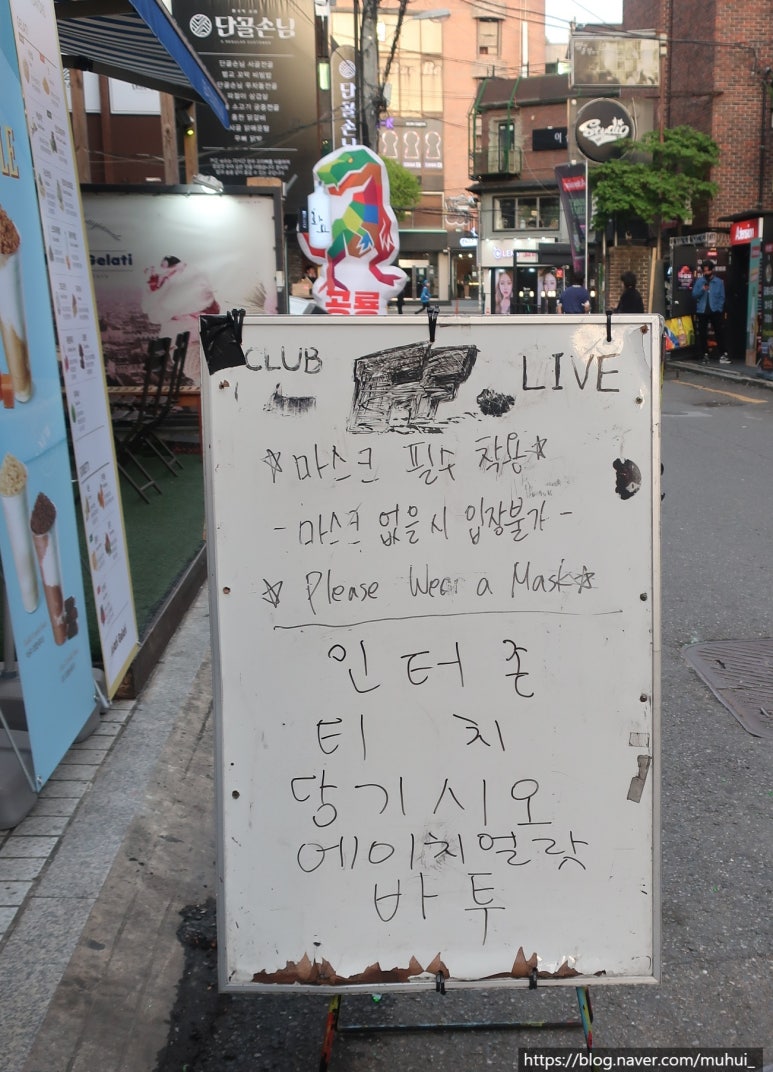 단골손님
A REGULAR CUSTOMER
단골손님
Studio
Gelati
공룡
CLUB
LIVE
☆마스크 필수 착용☆
- 마스크 없을 시 입장불가 -
☆ Please Wear a Mask☆
인터존
티 치
당기시오
에이치얼랏
바투
https://blog.naver.com/muhui_